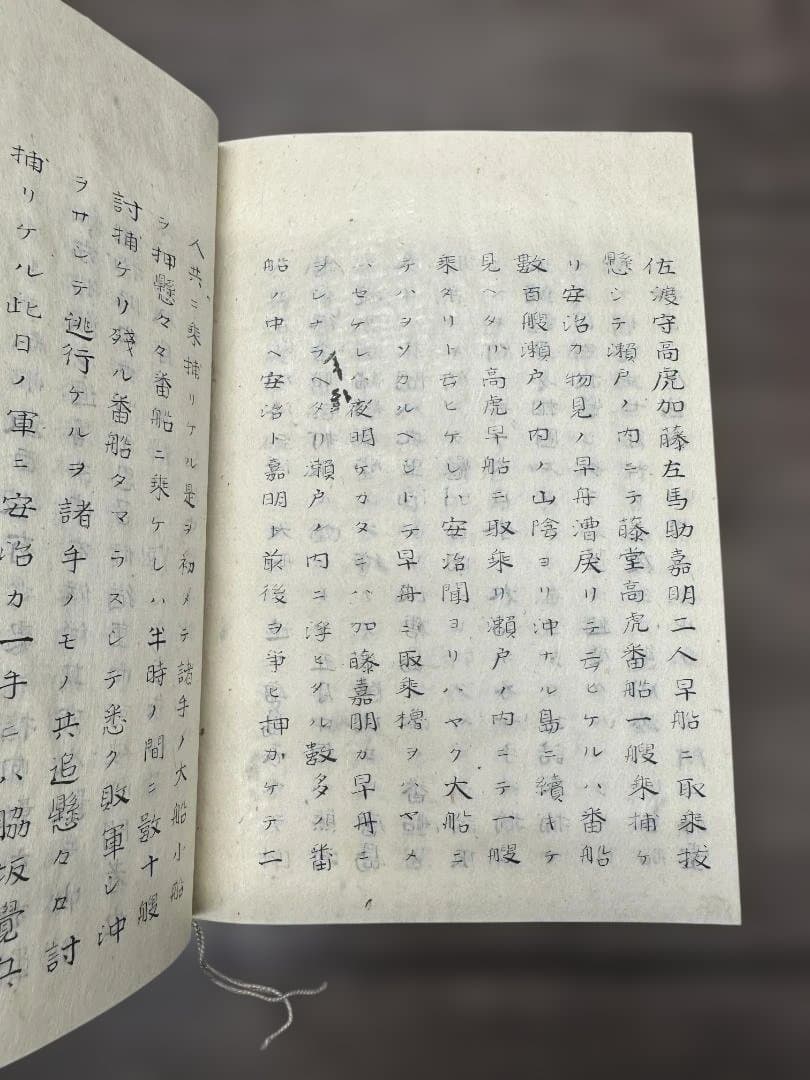 佐渡守高虎加藤左馬助嘉明二人早船ニ取乗抜
懸シテ瀬戸ノ内ニテ藤堂高虎番船一艘乗捕ケ
リ安治カ物見ノ早舟漕戻リテ云ヒケルハ番船
数百艘瀬戸ノ内ノ山陰ヨリ沖ナル島ニ續キテ
見ヘタリ高虎早船ニ取乗リ瀬戸ノ内ニテ一艘
乗タリト云ヒケレハ安治聞ヨリハヤク大船ニ
テハヲソカルヘシトテ早舟ニ取乗櫓ヲハヤメ
ハセケレハ夜明ケカタニハ加藤嘉明カ早舟ニ
ヲシナラヘタリ瀬戸ノ内ニ浮ヒタル數多ノ番
船ノ中ヘ安治ト嘉明ト前後ヲ爭ヒ押カケテ二
人共ニ乗捕リケル是ヲ初メテ諸手ノ大船小船
ヲ押懸々々番船ニ乗ケレハ半時ノ間ニ數十艘
討捕ケリ殘ル番船タマラスシテ悉ク敗軍シ沖
ヲサシテ逃行ケルヲ諸手ノモノ共追懸々々討
捕リケル此日ノ軍ニ安治カ一手ニハ脇坂覺兵